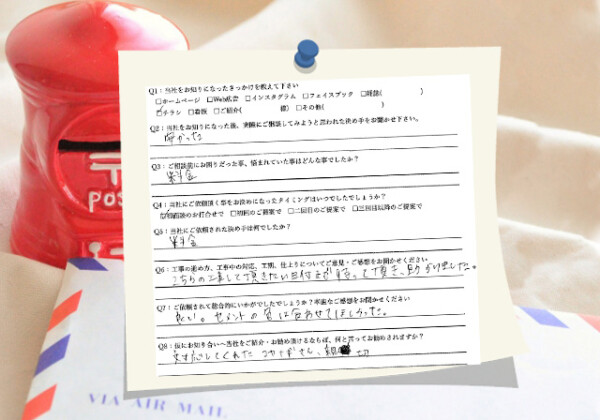 Q1：当社をお知りになったきっかけを教えて下さい
□ホームページ □Web広告 □インスタグラム □フェイスブック □雑誌( )
☑チラシ □看板 □ご紹介( 様) □その他( )
Q2：当社をお知りになった後、実際にご相談してみようと思われた決め手をお聞かせ下さい。
安かった
Q3：ご相談前にお困りだった事、悩まれていた事はどんな事でしたか？
料金
Q4：当社にご依頼頂く事をお決めになったタイミングはいつでしたでしょうか？
☑初回面談のお打合せで □初回のご提案で □二回目のご提案で □三回目以降のご提案で
Q5：当社に依頼された決め手は何でしたか？
料金
Q6：工事の進め方、工事中の対応、工期、仕上りについてご意見・ご感想をお聞かせください。
こちらの工事して頂きたい日付まで待って頂き、助かりました。
Q7：ご依頼されて総合的にいかがでしたでしょうか？率直なご感想をお聞かせください
良い。セメントの色は合わせてほしかった。
Q8：仮にお知り合いへ当社をご紹介・お勧め頂けるならば、何と言ってお勧めされますか？
対応してくれた さん、親切
POS
VIA AIR MAIL